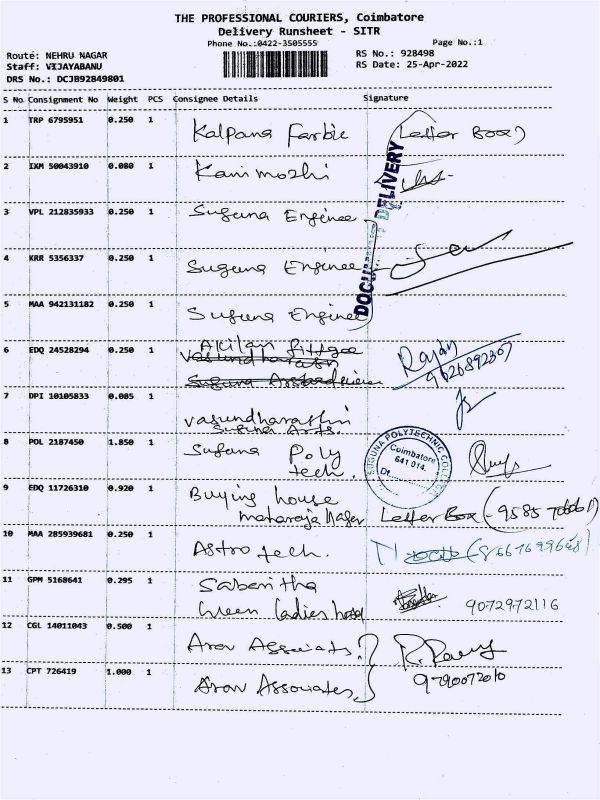 THE PROFESSIONAL COURIERS, Coimbatore
Delivery Runsheet - SITR
Phone No.:0422-3505555
Page No.:1
Route: NEHRU NAGAR
RS No.: 928498
Staff: VIJAYABANU
RS Date: 25-Apr-2022
DRS No.: DCJB92849801
S No Consignment No Weight PCS Consignee Details Signature
1 TRP 6795951 0.250 1 Kalpana Farbic (Letter Box)
2 IXM 50043910 0.080 1 Kanimozhi
3 VPL 212835933 0.250 1 Suguna Enginee
4 KRR 5356337 0.250 1 Suguna Enginee
5 MAA 942131182 0.250 1 Suguna Enginee
DOCUMENT DELIVERY
6 EDQ 24528294 0.250 1 Akilan Rajan
Vasundharathi
Suguna
7 DPI 10105833 0.085 1 Vasundharathi
Suguna Arts.
8 POL 2187450 1.850 1 Suguna Poly
tech.
SUGUNA POLYTECHNIC COLLEGE
Coimbatore
641 014.
Dt.
9 EDQ 11726310 0.920 1 Buying house
maharaja Nager Letter Box
10 MAA 285939681 0.250 1 Astro tech.
11 GPM 5168641 0.295 1 Sabaritha
Green Ladies hostel 9072972116
12 CGL 14011043 0.500 1 Arav Associats.
13 CPT 726419 1.000 1 Arav Associates. 9790072010